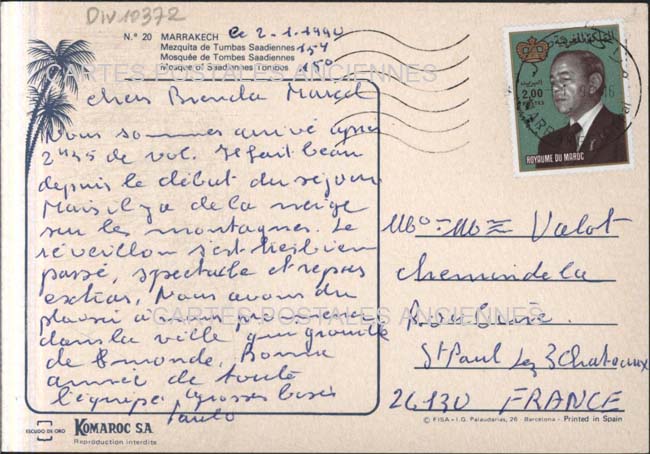 Div 10372
N.º 20 MARRAKECH Ce 2-1-1990
Mezquita de Tumbas Saadiennes 154
Mosquée de Tombes Saadiennes
Mosque of Saadiennes Tombs 150
CARTES POSTALES ANCIENNES
chers Brenda Marcel
Nous sommes arrivé apres
2h45 de vol. Il fait beau
depuis le début du séjour
Mais il y a de la neige
sur les montagnes. Le
réveillon s'est très bien
passé, spectacle et repas
extras, Nous avons du
plaisir à nous promener
CARTES POSTALES ANCIENNES
dans la ville qui grouille
de monde, Bonne
année de toute
l'équipe, grosses bises
2,00
ROYAUME DU MAROC
Valot
chemin de la
St Paul lez 3 chateaux
26130 FRANCE
ESCUDO DE ORO
KOMAROC S.A.
Reproduction interdite
© FISA - I.G. Palaudarias, 26 - Barcelona - Printed in Spain